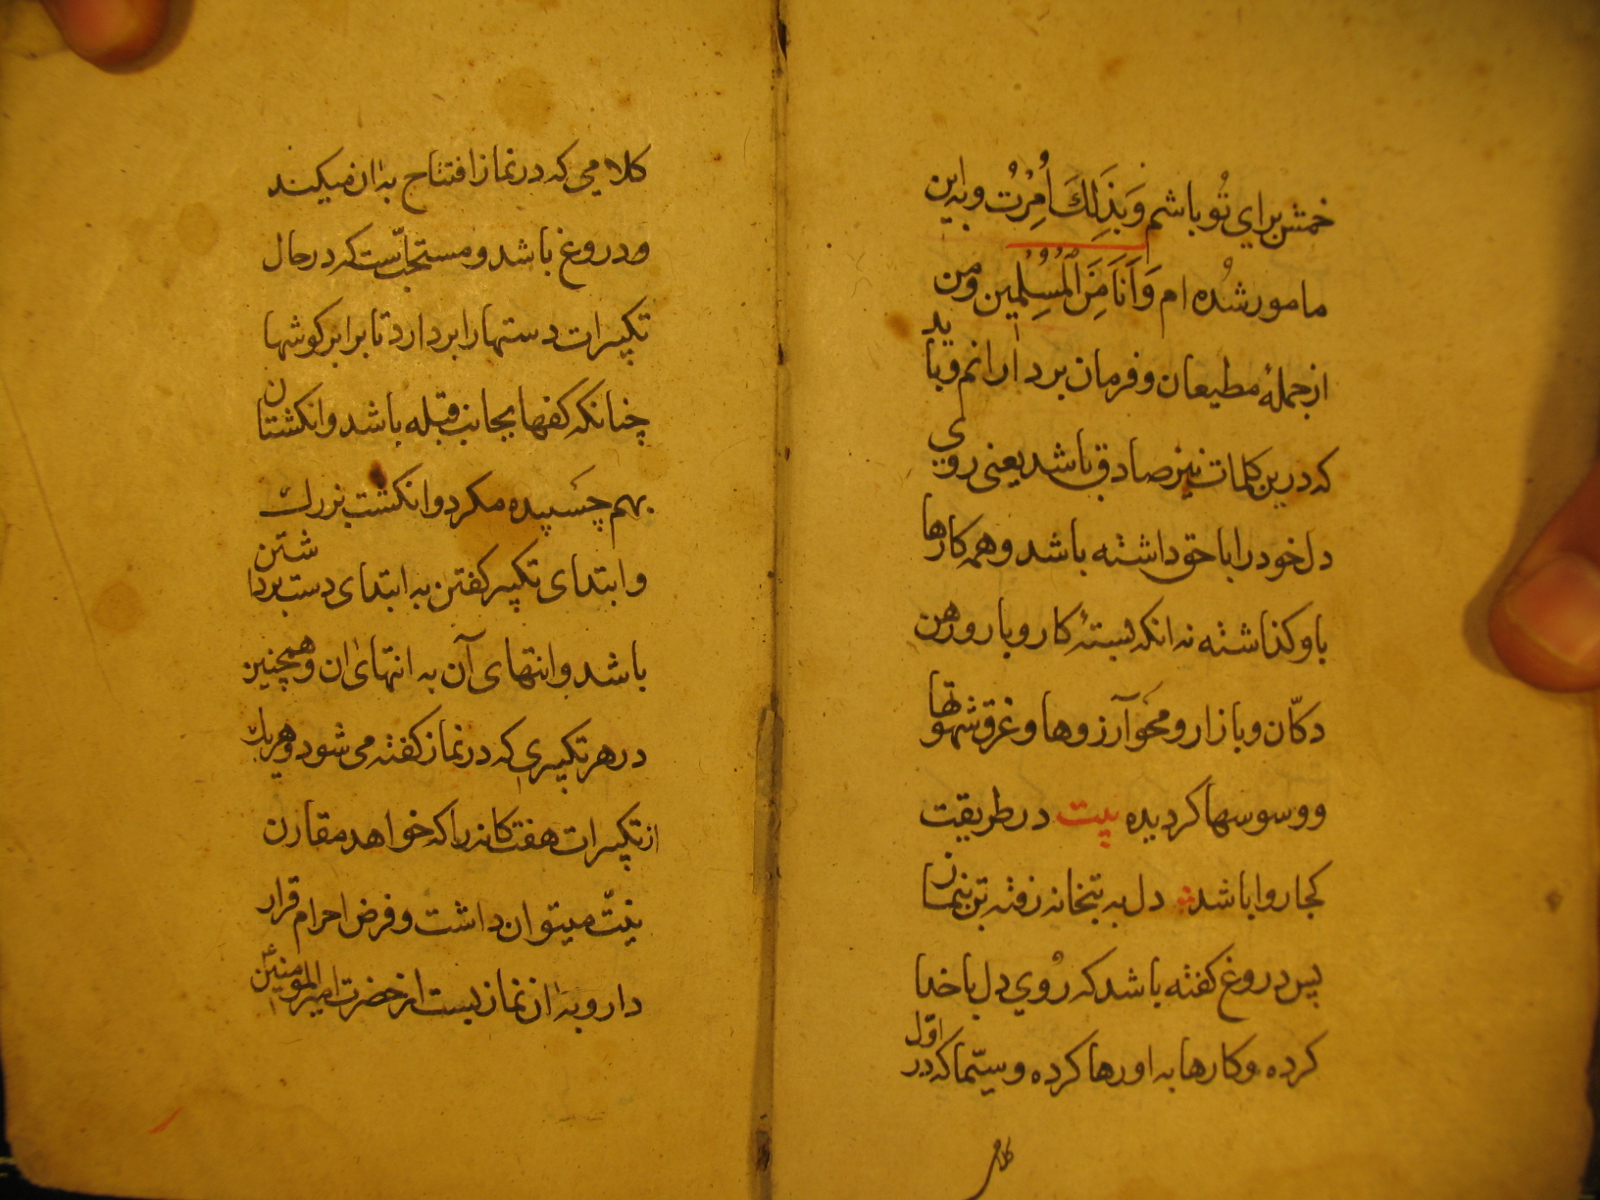 خمش برای تُو باشم وَبِذَلِكَ اُمِرْتُ و به این
مامور شُده ام وَاَنَا مِنَ الْمُسْلِمین ومن
از جملهٔ مطیعان و فرمان بردارانم و باید
که درین کلمات نیز صادق باشد یعنی روی
دل خود را با حق داشته باشد و همه کارها
باو کذاشته نه انکه بستهٔ کار و بار و رهن
دکّان و بازار و محو آرزوها و غرق شهوتها
و وسوسها کردیده بیت در طریقت
کجا روا باشد دل به بتخانه رفته تن بنماز
پس دروغ کفته باشد که رُوی دل باخدا
کرده و کارها به او رها کرده و سیّما که در اوّل
کلامی
کلامی که در نماز افتتاح به ان میکند
و دروغ باشد و مستحبّست که در حال
تکبیرات دستها را بردارد تا برابر کوشها
چنانکه کفها بجانب قبله باشد و انکشتان
بهم چسپیده مکر دو انکشت بزرك
و ابتدای تکبیر کفتن به ابتدای دست برداشتن
باشد و انتهای آن به انتهای ان و همچنین
در هر تکبیری که در نماز کفته می شود و هر یك
از تکبیرات هفتکانه را که خواهد مقارن
نیّت میتوان داشت و فرض احرام قرار
داد و به ان نماز بست از حضرت امیر المومنین ع